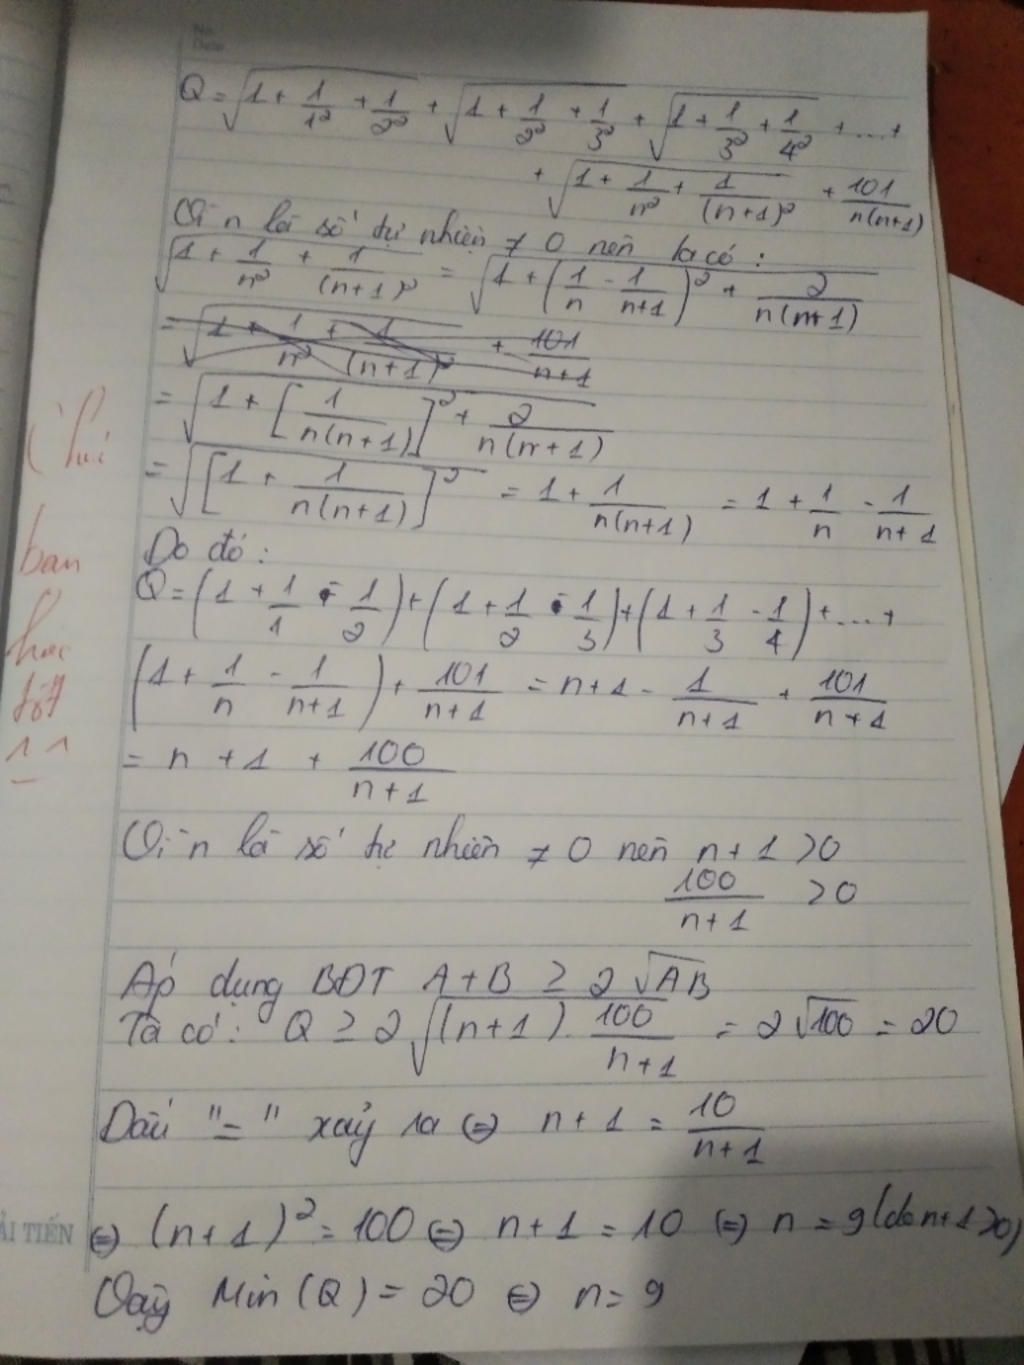 No.
Date
Q = √(1 + 1/1² + 1/2²) + √(1 + 1/2² + 1/3²) + √(1 + 1/3² + 1/4²) + ... +
+ √(1 + 1/n² + 1/(n+1)²) + 101/n(n+1)
Vì n là số tự nhiên ≠ 0 nên ta có:
√(1 + 1/n² + 1/(n+1)²) = √(1 + (1/n - 1/(n+1))² + 2/n(n+1))
= √(1 + 1/n² + 1/(n+1)²) + 101/(n+1)
= √(1 + [1/n(n+1)]² + 2/n(n+1))
= √([1 + 1/n(n+1)]²) = 1 + 1/n(n+1) = 1 + 1/n - 1/(n+1)
Do đó:
Q = (1 + 1/1 - 1/2) + (1 + 1/2 - 1/3) + (1 + 1/3 - 1/4) + ... +
(1 + 1/n - 1/(n+1)) + 101/(n+1) = n+1 - 1/(n+1) + 101/(n+1)
= n + 1 + 100/(n+1)
Vì n là số tự nhiên ≠ 0 nên n + 1 > 0
100/(n+1) > 0
Áp dụng BĐT A + B ≥ 2√AB
Ta có: Q ≥ 2√((n+1).100/(n+1)) = 2√100 = 20
Dấu "=" xảy ra ⇔ n + 1 = 10/(n+1)
⇔ (n+1)² = 100 ⇔ n + 1 = 10 ⇔ n = 9 (do n+1 > 0)
Vậy Min(Q) = 20 ⇔ n = 9
ẢI TIẾN
Chúc
bạn
học
tốt
^^